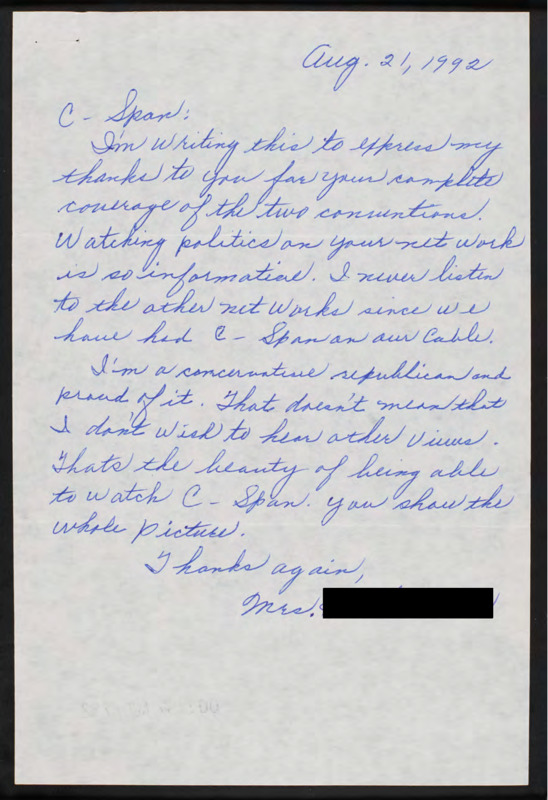 Aug. 21, 1992
C - Span:
I'm writing this to express my
thanks to you for your complete
coverage of the two conventions.
Watching politics on your net work
is so informative. I never listen
to the other net works since we
have had C - Span on our Cable.
I'm a conservative republican and
proud of it. That doesn't mean that
I don't wish to hear other views.
Thats the beauty of being able
to watch C - Span. you show the
whole picture.
Thanks again,
Mrs.